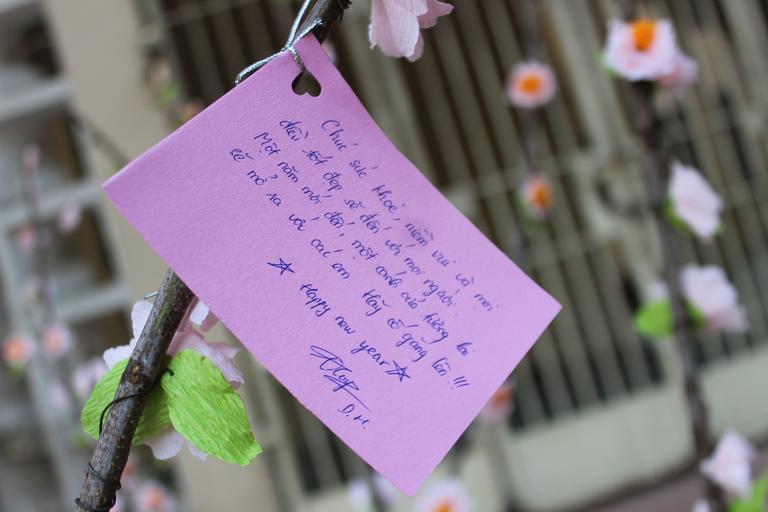 Chúc sức khỏe, niềm vui và mọi
điều tốt đẹp sẽ đến với mọi người.
Một năm mới đến, một cánh cửa tương lai
sẽ mở ra với các em. Hãy cố gắng lên!!!
☆ Happy new year ☆
D.H.